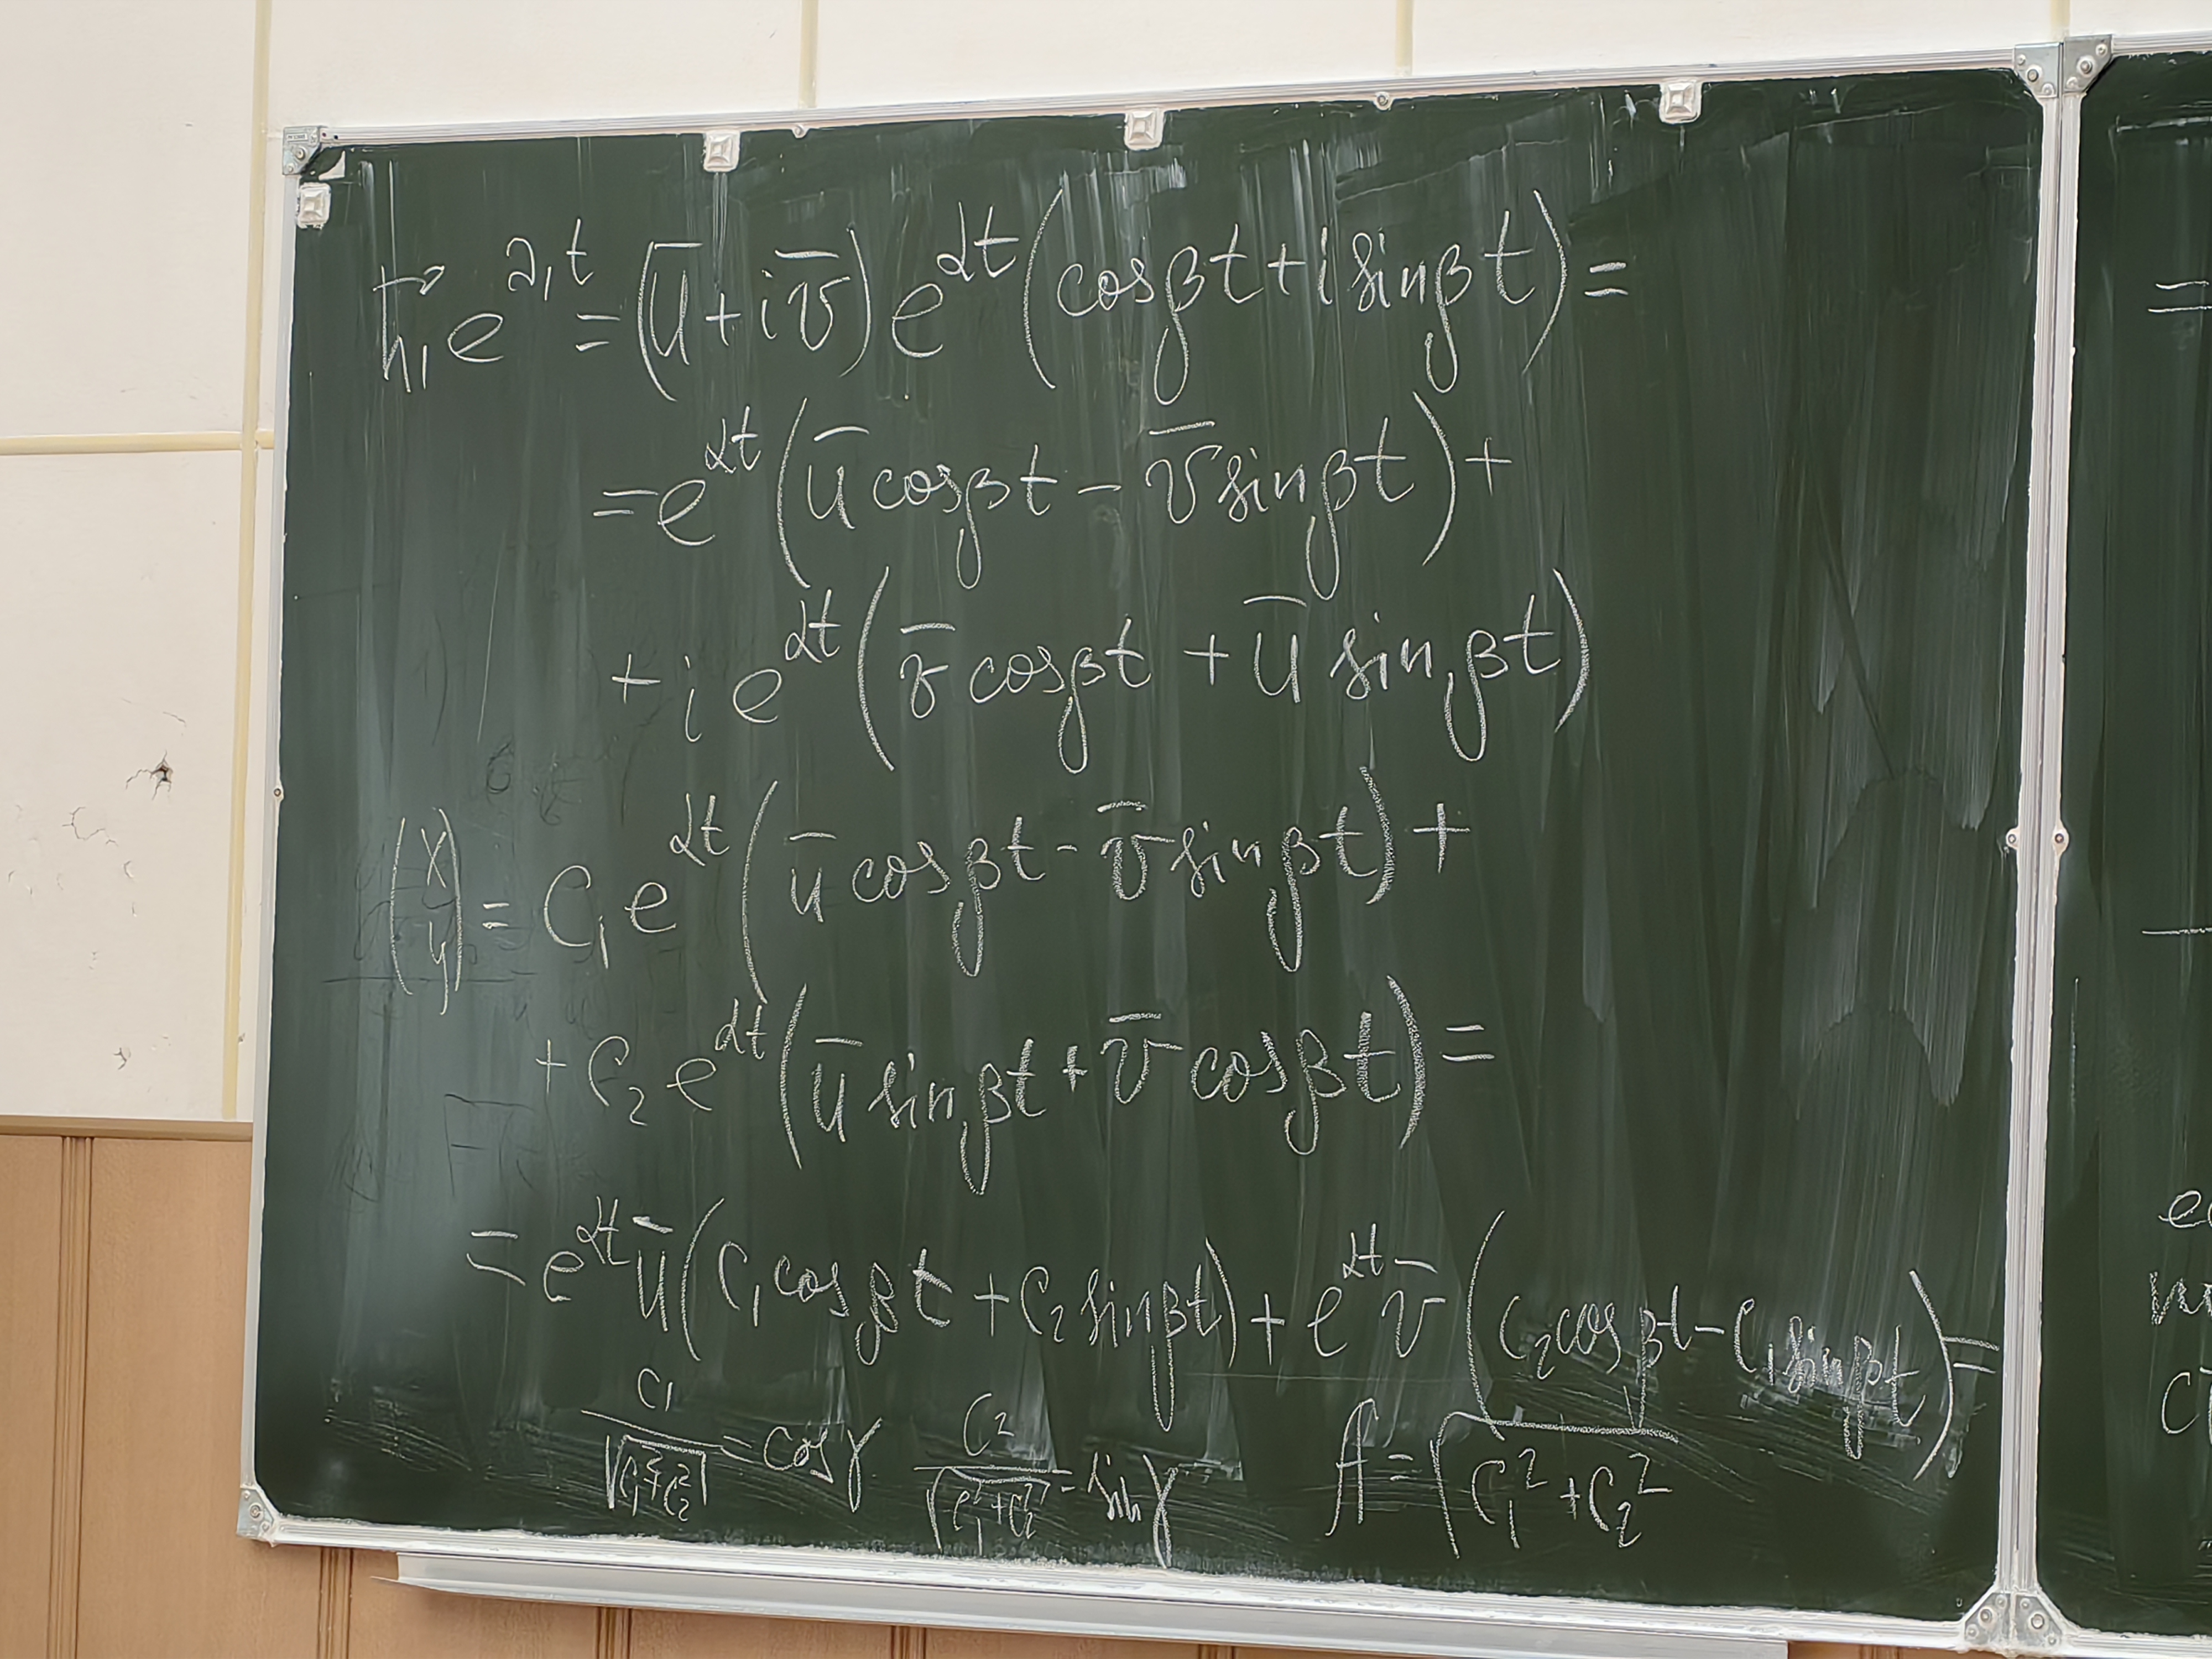 h⃗₁ e^{λ₁t} = (u̅ + i v̅) e^{αt} (cos βt + i sin βt) =
= e^{αt} (u̅ cos βt − v̅ sin βt) +
+ i e^{αt} (v̅ cos βt + u̅ sin βt)
(x y) = C₁ e^{αt} (u̅ cos βt − v̅ sin βt) +
+ C₂ e^{αt} (u̅ sin βt + v̅ cos βt) =
= e^{αt} u̅ (C₁ cos βt + C₂ sin βt) + e^{αt} v̅ (C₂ cos βt − C₁ sin βt) =
C₁/√(C₁² + C₂²) = cos γ C₂/√(C₁² + C₂²) = sin γ A = √(C₁² + C₂²)